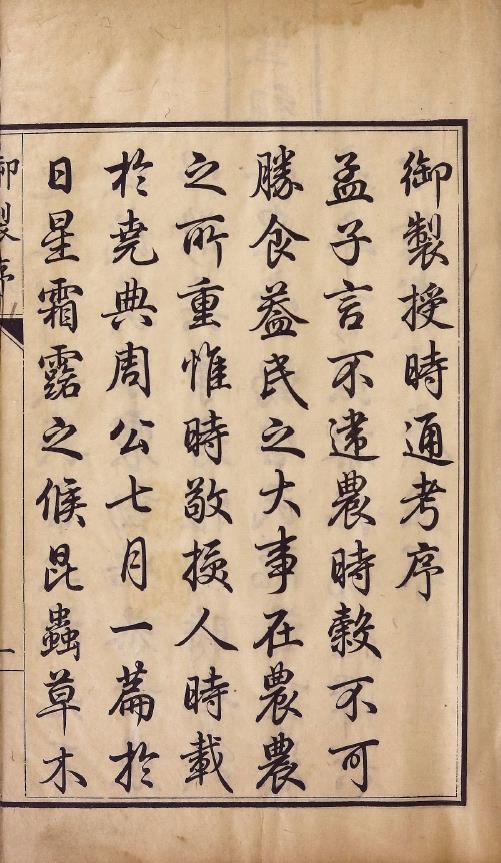 御製授時通考序
孟子言不違農時穀不可
勝食葢民之大事在農農
之所重惟時敬授人時載
於堯典周公七月一篇於
日星霜露之候昆蟲草木
御製序
一